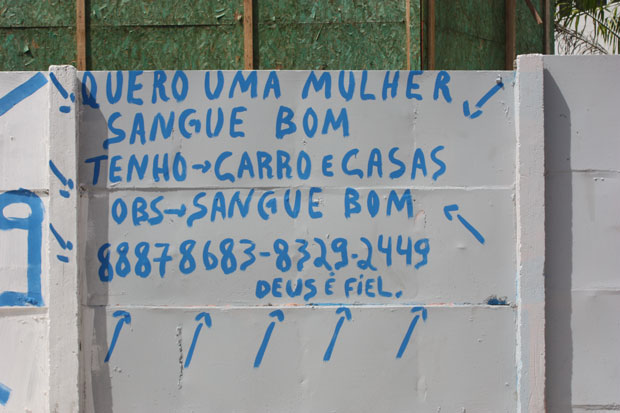 QUERO UMA MULHER
SANGUE BOM
TENHO→CARRO E CASAS
OBS→SANGUE BOM
88878683-8329-2449
DEUS É FIEL.